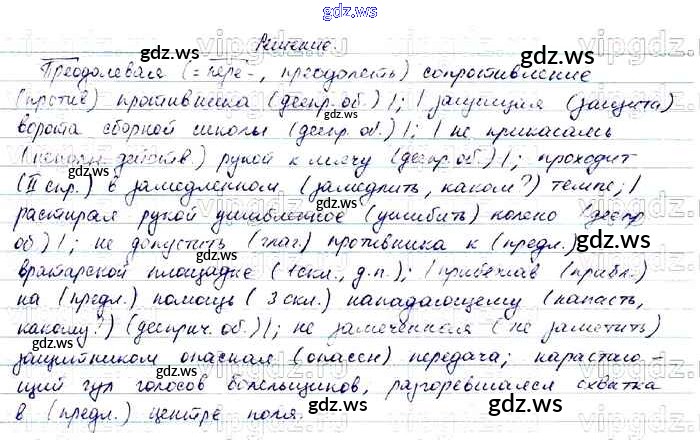 gdz.ws
Решение.
gdz.ws
Преодолевая (= пере-, преодолеть) сопротивление
(против) противника (деепр. об.) |; | защищая (защита)
ворота сборной школы (деепр. об.) |; | не прикасаясь
действ.) рукой к мячу (деепр. об.) |; проходит
(II спр.) в замедленном (замедлить, каком?) темпе; |
растирая рукой ушибленное (ушибить) колено (деепр
об) |; не допустить (глаг.) противника к (предл.)
вратарской площадке (1 скл., д.п.); | прибежав (прибл.)
на (предл.) помощь (3 скл.) нападающему (напасть,
какому?) (дееприч. об.) |; не замеченная (не заметить)
защитником опасная (опасен) передача; нарастаю-
щий гул голосов болельщиков, разгоревшаяся схватка
в (предл.) центре поля.
gdz.ws